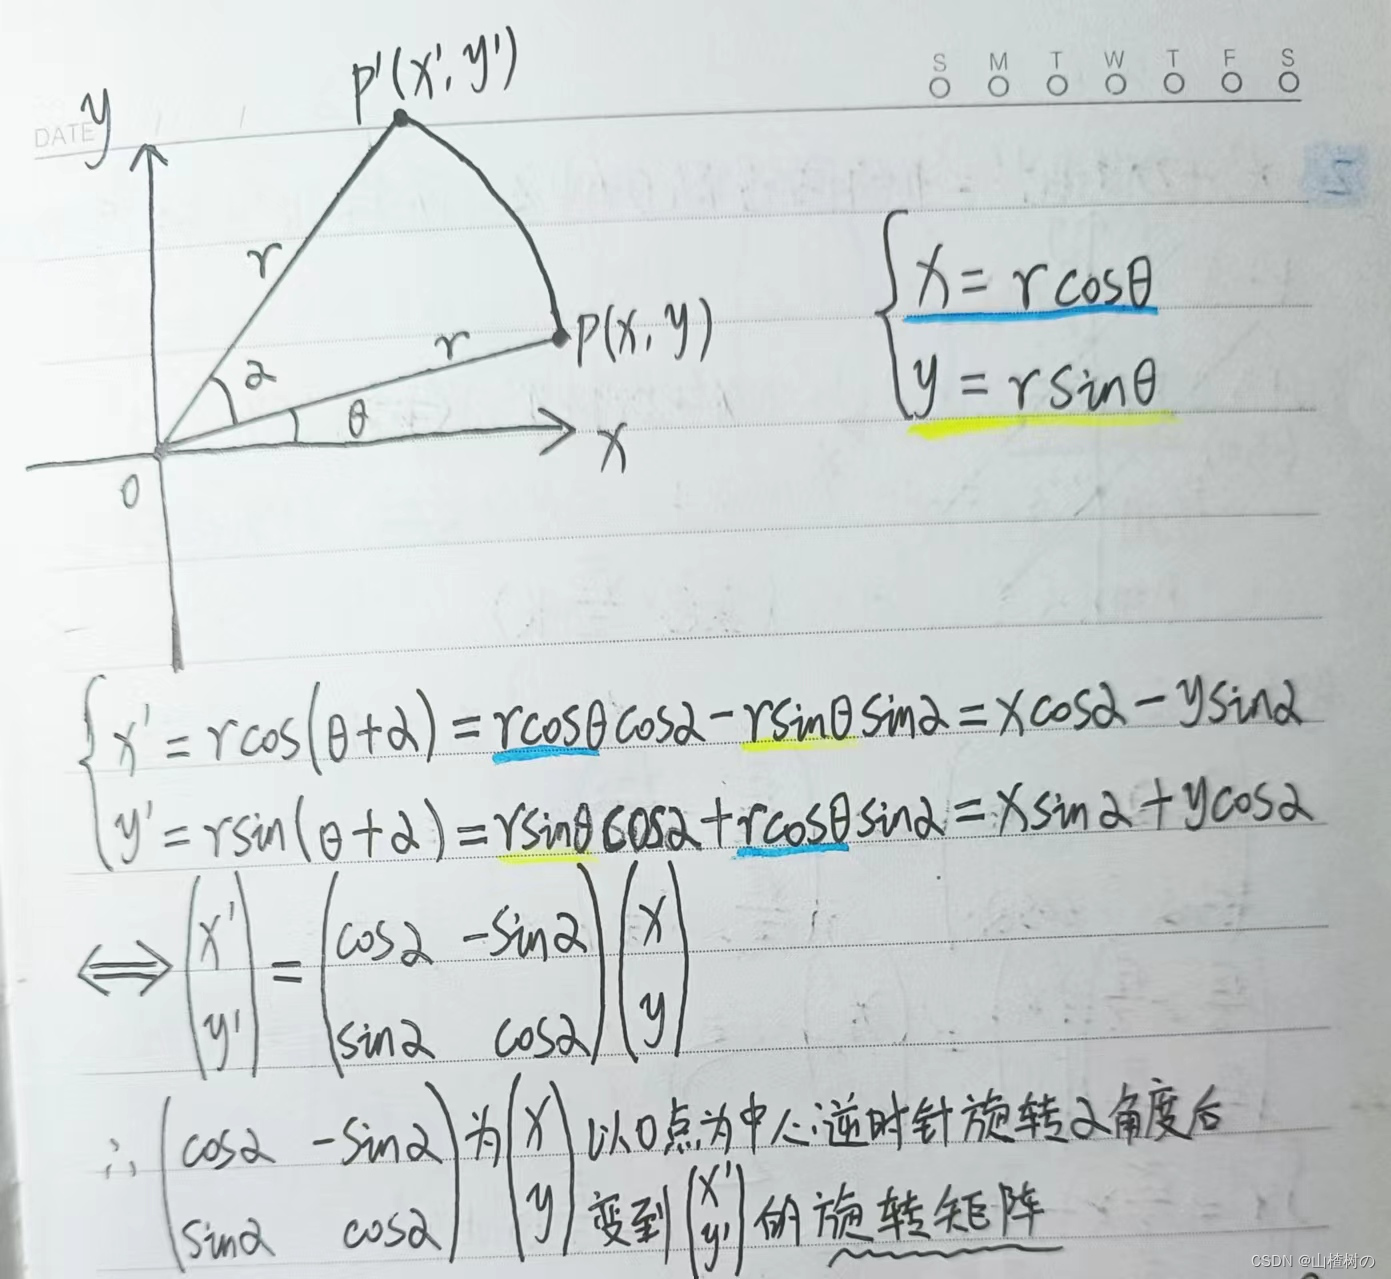 S M T W T F S
DATE
y
P'(x', y')
r
α
r
P(x, y)
θ
x
0
x = r cosθ
y = r sinθ
x' = r cos(θ+α) = r cosθ cosα - r sinθ sinα = x cosα - y sinα
y' = r sin(θ+α) = r sinθ cosα + r cosθ sinα = x sinα + y cosα
⟺ (x' y') = (cosα -sinα sinα cosα)(x y)
∴ (cosα -sinα sinα cosα) 为 (x y) 以0点为中心逆时针旋转α角度后
变到 (x' y') 的旋转矩阵
CSDN @山楂树の